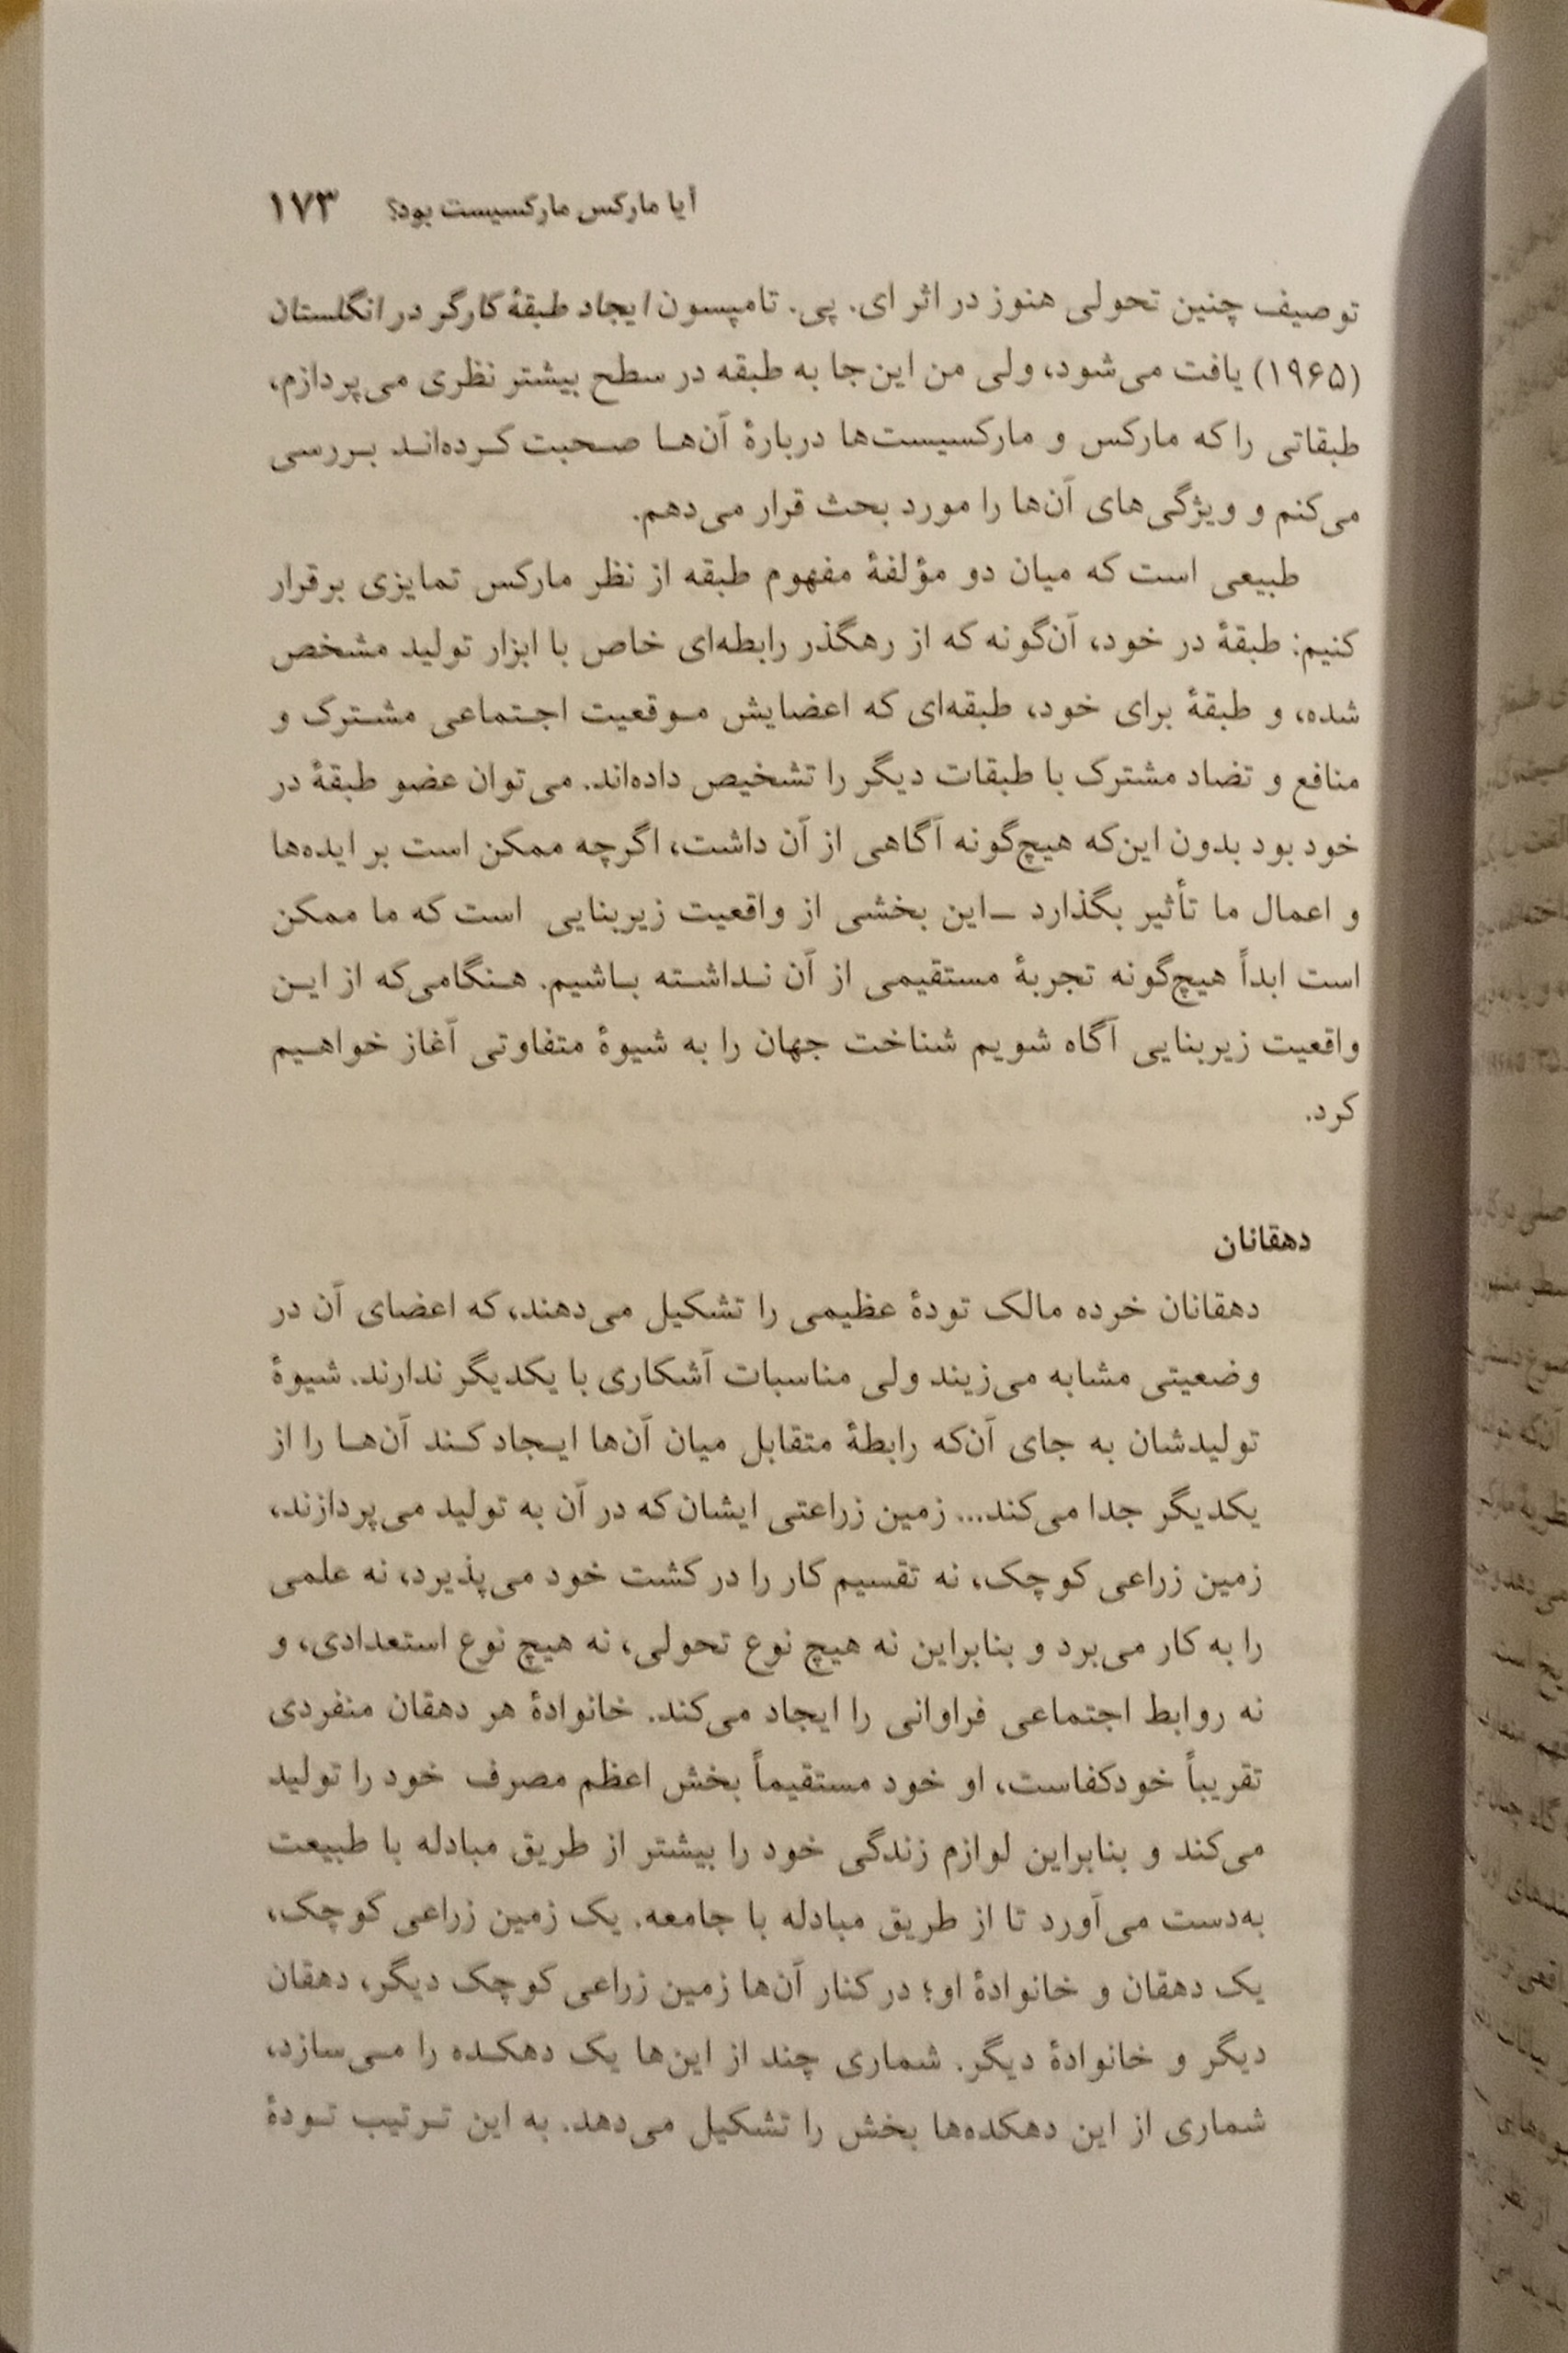 آیا مارکس مارکسیست بود؟ ۱۷۳
توصیف چنین تحولی هنوز در اثر ای. پی. تامپسون ایجاد طبقهٔ کارگر در انگلستان
(۱۹۶۵) یافت می‌شود، ولی من این‌جا به طبقه در سطح بیشتر نظری می‌پردازم،
طبقاتی را که مارکس و مارکسیست‌ها دربارهٔ آن‌ها صحبت کرده‌اند بررسی
می‌کنم و ویژگی‌های آن‌ها را مورد بحث قرار می‌دهم.
طبیعی است که میان دو مؤلفهٔ مفهوم طبقه از نظر مارکس تمایزی برقرار
کنیم: طبقهٔ در خود، آن‌گونه که از رهگذر رابطه‌ای خاص با ابزار تولید مشخص
شده، و طبقهٔ برای خود، طبقه‌ای که اعضایش موقعیت اجتماعی مشترک و
منافع و تضاد مشترک با طبقات دیگر را تشخیص داده‌اند. می‌توان عضو طبقهٔ در
خود بود بدون این‌که هیچ‌گونه آگاهی از آن داشت، اگرچه ممکن است بر ایده‌ها
و اعمال ما تأثیر بگذارد ــ این بخشی از واقعیت زیربنایی است که ما ممکن
است ابداً هیچ‌گونه تجربهٔ مستقیمی از آن نداشته باشیم. هنگامی‌که از این
واقعیت زیربنایی آگاه شویم شناخت جهان را به شیوهٔ متفاوتی آغاز خواهیم
کرد.
دهقانان
دهقانان خرده مالک تودهٔ عظیمی را تشکیل می‌دهند، که اعضای آن در
وضعیتی مشابه می‌زیند ولی مناسبات آشکاری با یکدیگر ندارند. شیوهٔ
تولیدشان به جای آن‌که رابطهٔ متقابل میان آن‌ها ایجاد کند آن‌ها را از
یکدیگر جدا می‌کند... زمین زراعتی ایشان که در آن به تولید می‌پردازند،
زمین زراعی کوچک، نه تقسیم کار را در کشت خود می‌پذیرد، نه علمی
را به کار می‌برد و بنابراین نه هیچ نوع تحولی، نه هیچ نوع استعدادی، و
نه روابط اجتماعی فراوانی را ایجاد می‌کند. خانوادهٔ هر دهقان منفردی
تقریباً خودکفاست، او خود مستقیماً بخش اعظم مصرف خود را تولید
می‌کند و بنابراین لوازم زندگی خود را بیشتر از طریق مبادله با طبیعت
به‌دست می‌آورد تا از طریق مبادله با جامعه. یک زمین زراعی کوچک،
یک دهقان و خانوادهٔ او؛ در کنار آن‌ها زمین زراعی کوچک دیگر، دهقان
دیگر و خانوادهٔ دیگر. شماری چند از این‌ها یک دهکده را می‌سازد،
شماری از این دهکده‌ها بخش را تشکیل می‌دهد. به این ترتیب تودهٔ